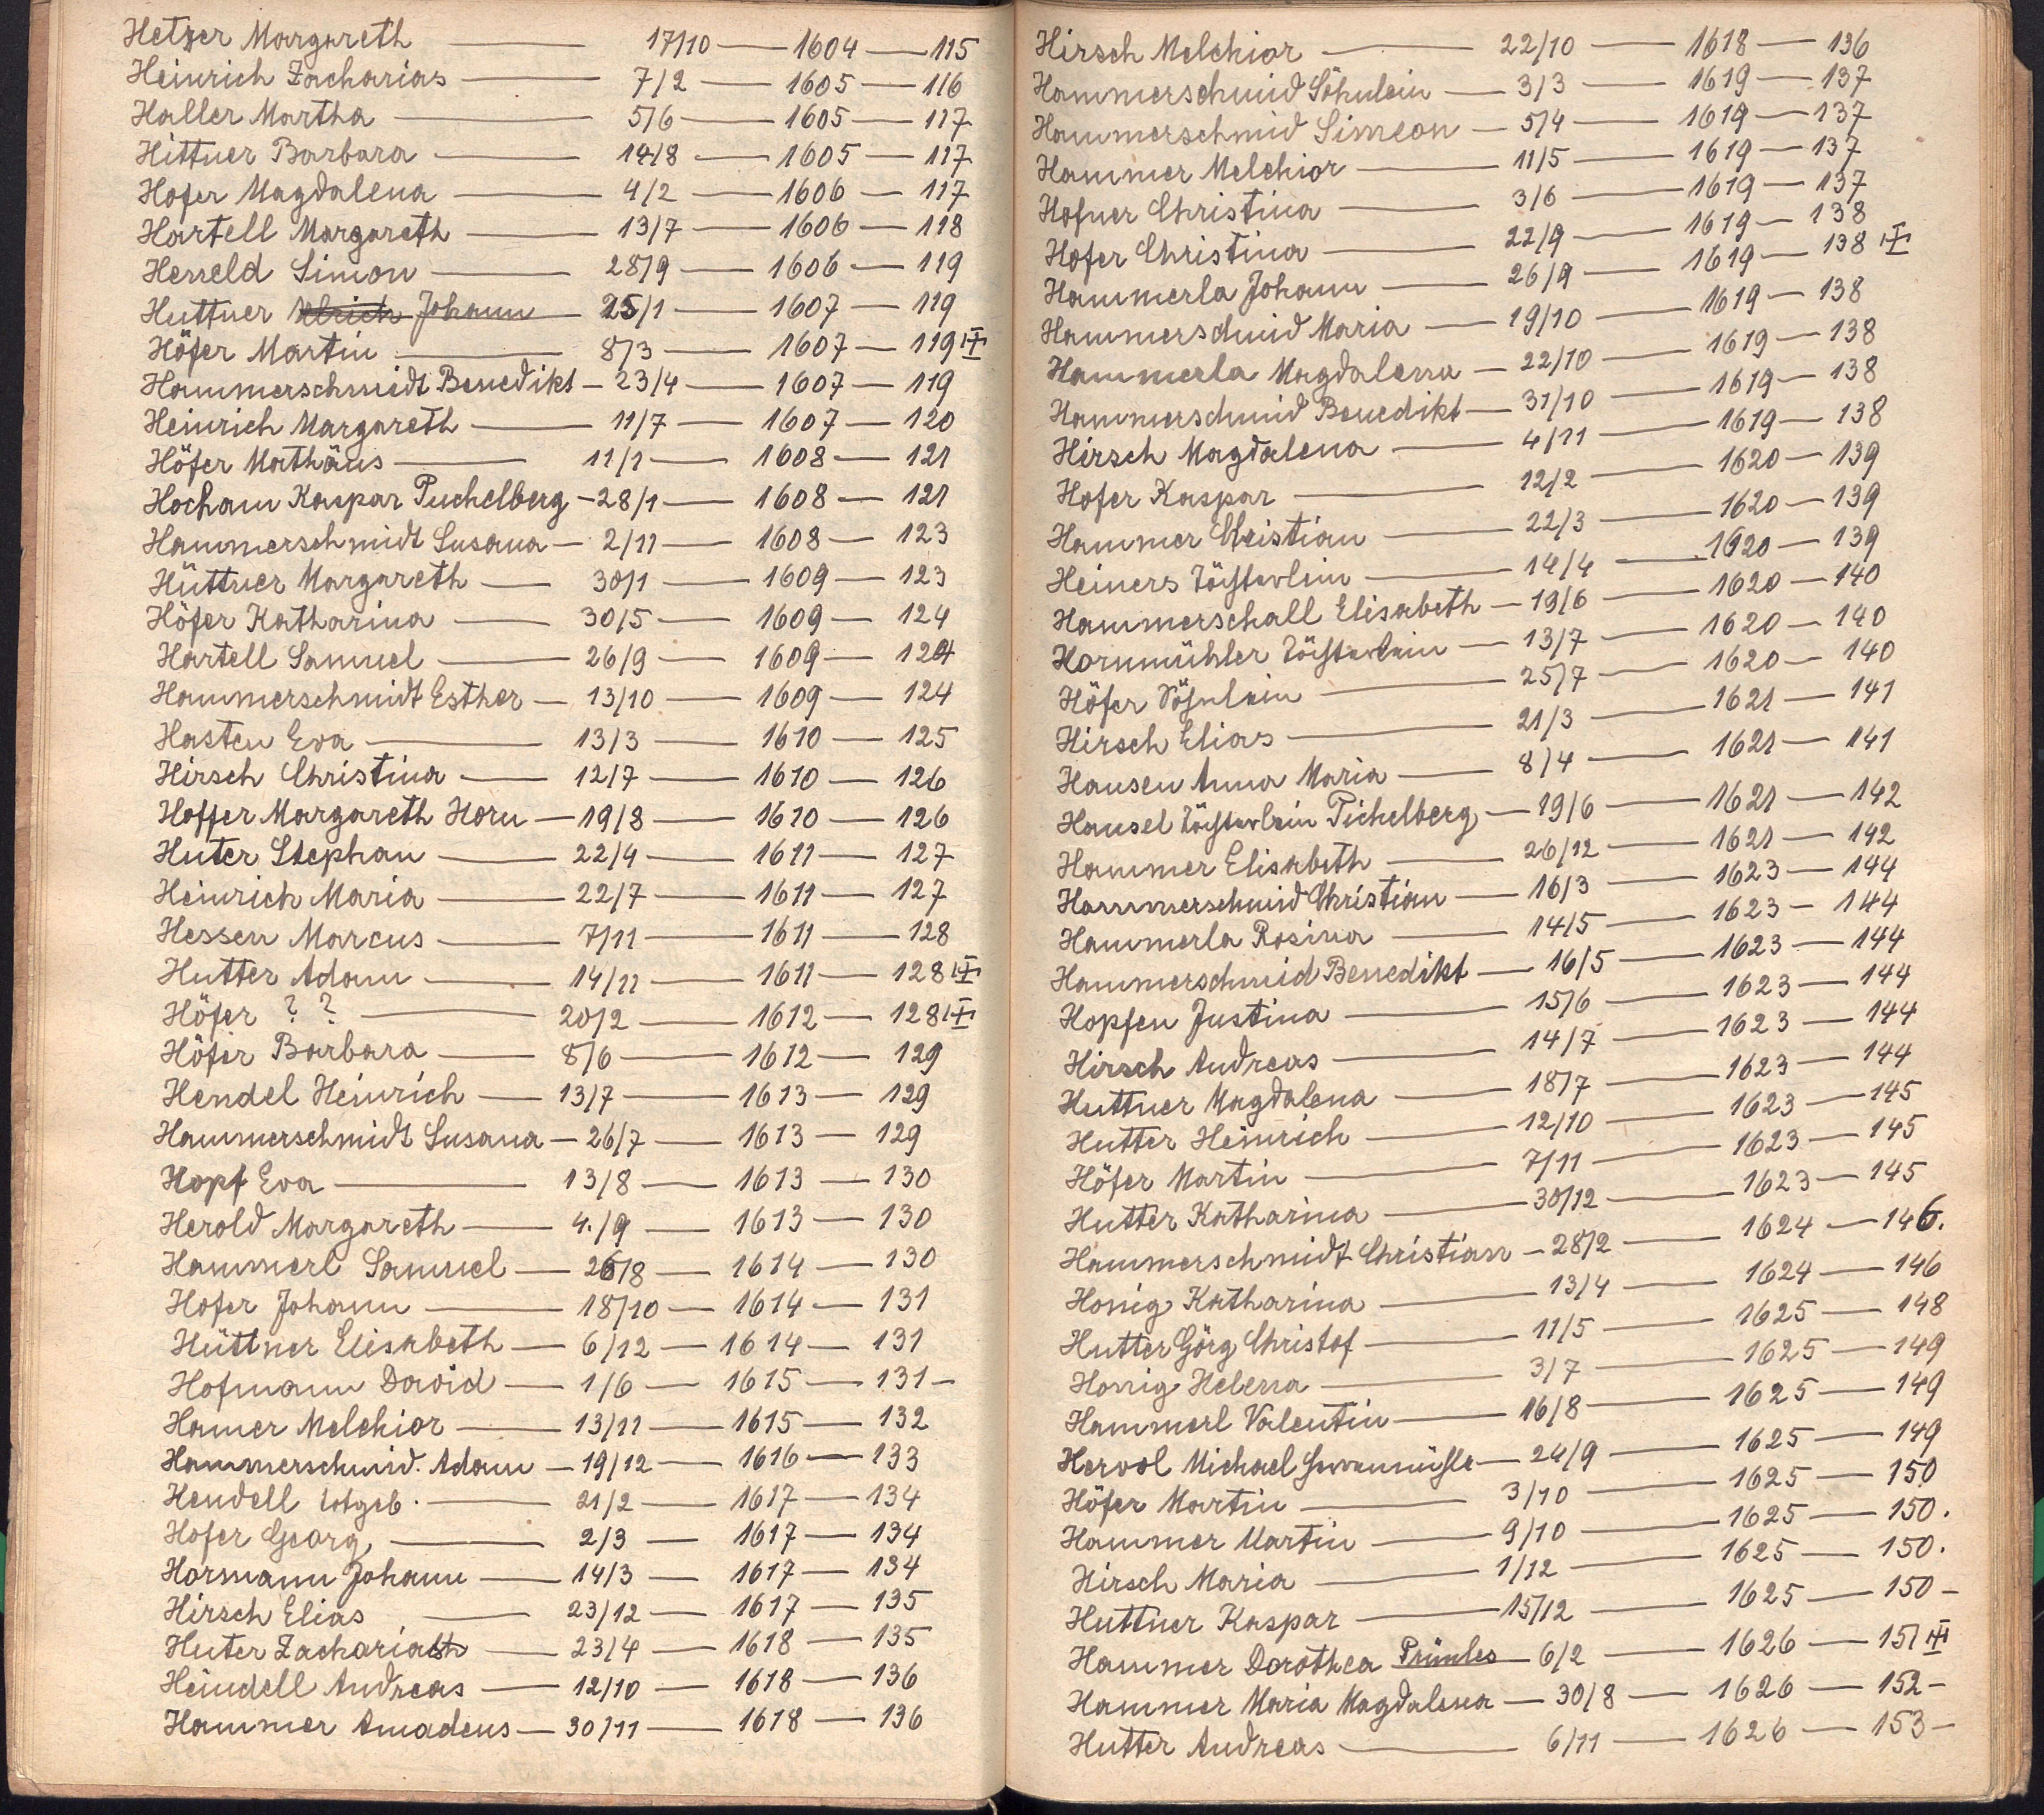 Hetzer Margareth — 17/10 — 1604 — 115
Heinrich Zacharias — 7/2 — 1605 — 116
Haller Martha — 5/6 — 1605 — 117
Hittner Barbara — 14/8 — 1605 — 117
Hofer Magdalena — 4/2 — 1606 — 117
Hartell Margareth — 13/7 — 1606 — 118
Herreld Simon — 28/9 — 1606 — 119
Huttner Ulrich Johann — 25/1 — 1607 — 119
Höfer Martin — 8/3 — 1607 — 119
Hammerschmidt Benedikt — 23/4 — 1607 — 119
Heinrich Margareth — 11/7 — 1607 — 120
Höfer Mathäus — 11/1 — 1608 — 121
Hocham Kaspar Puchelberg — 28/1 — 1608 — 121
Hammerschmidt Susana — 2/11 — 1608 — 123
Hüttner Margareth — 30/1 — 1609 — 123
Höfer Katharina — 30/5 — 1609 — 124
Hartell Samuel — 26/9 — 1609 — 124
Hammerschmidt Esther — 13/10 — 1609 — 124
Hasten Eva — 13/3 — 1610 — 125
Hirsch Christina — 12/7 — 1610 — 126
Hoffer Margareth Horn — 19/8 — 1610 — 126
Huter Stephan — 22/4 — 1611 — 127
Heinrich Maria — 22/7 — 1611 — 127
Hessen Marcus — 7/11 — 1611 — 128
Hutter Adam — 14/11 — 1611 — 128
Höfer ? ? — 20/2 — 1612 — 128
Höfer Barbara — 8/6 — 1612 — 129
Hendel Heinrich — 13/7 — 1613 — 129
Hammerschmidt Susana — 26/7 — 1613 — 129
Hopf Eva — 13/8 — 1613 — 130
Herold Margareth — 4./9 — 1613 — 130
Hammerl Samuel — 26/8 — 1614 — 130
Hofer Johann — 18/10 — 1614 — 131
Hüttner Elisabeth — 6/12 — 1614 — 131
Hofmann David — 1/6 — 1615 — 131 —
Hamer Melchior — 13/11 — 1615 — 132
Hammerschmid. Adam — 19/12 — 1616 — 133
Hendell totgeb. — 21/2 — 1617 — 134
Hofer Georg — 2/3 — 1617 — 134
Hormann Johann — 14/3 — 1617 — 134
Hirsch Elias — 23/12 — 1617 — 135
Huter — 23/4 — 1618 — 135
Heindell Andreas — 12/10 — 1618 — 136
Hammer Amadeus — 30/11 — 1618 — 136
Hirsch Melchior — 22/10 — 1618 — 136
Hammerschmid Söhnlein — 3/3 — 1619 — 137
Hammerschmid Simeon — 5/4 — 1619 — 137
Hammer Melchior — 11/5 — 1619 — 137
Hofner Christina — 3/6 — 1619 — 137
Hofer Christina — 22/9 — 1619 — 138
Hammerla Johann — 26/9 — 1619 — 138
Hammerschmid Maria — 19/10 — 1619 — 138
Hammerla Magdalena — 22/10 — 1619 — 138
Hammerschmid Benedikt — 31/10 — 1619 — 138
Hirsch Magdalena — 4/11 — 1619 — 138
Hofer Kaspar — 12/2 — 1620 — 139
Hammer Christian — 22/3 — 1620 — 139
Heiners Töchterlein — 14/4 — 1620 — 139
Hammerschall Elisabeth — 19/6 — 1620 — 140
Hornmühler Töchterlein — 13/7 — 1620 — 140
Höfer Söhnlein — 25/7 — 1620 — 140
Hirsch Elias — 21/3 — 1621 — 141
Hausen Anna Maria — 8/4 — 1621 — 141
Hausel Töchterlein Pichelberg — 19/6 — 1621 — 142
Hammer Elisabeth — 26/12 — 1621 — 142
Hammerschmid Christian — 16/3 — 1623 — 144
Hammerla Rosina — 14/5 — 1623 — 144
Hammerschmid Benedikt — 16/5 — 1623 — 144
Hopfen Justina — 15/6 — 1623 — 144
Hirsch Andreas — 14/7 — 1623 — 144
Huttner Magdalena — 18/7 — 1623 — 144
Hutter Heinrich — 12/10 — 1623 — 145
Höfer Martin — 7/11 — 1623 — 145
Hutter Katharina — 30/12 — 1623 — 145
Hammerschmidt Christian — 28/2 — 1624 — 146.
Honig Katharina — 13/4 — 1624 — 146
Hutter Görg Christof — 11/5 — 1625 — 148
Honig Helena — 3/7 — 1625 — 149
Hammerl Valentin — 16/8 — 1625 — 149
Hervol Michael — 24/9 — 1625 — 149
Höfer Martin — 3/10 — 1625 — 150
Hammer Martin — 9/10 — 1625 — 150.
Hirsch Maria — 1/12 — 1625 — 150.
Huttner Kaspar — 15/12 — 1625 — 150 —
Hammer Dorothea Prünles — 6/2 — 1626 — 151
Hammer Maria Magdalena — 30/8 — 1626 — 152 —
Hutter Andreas — 6/11 — 1626 — 153 —